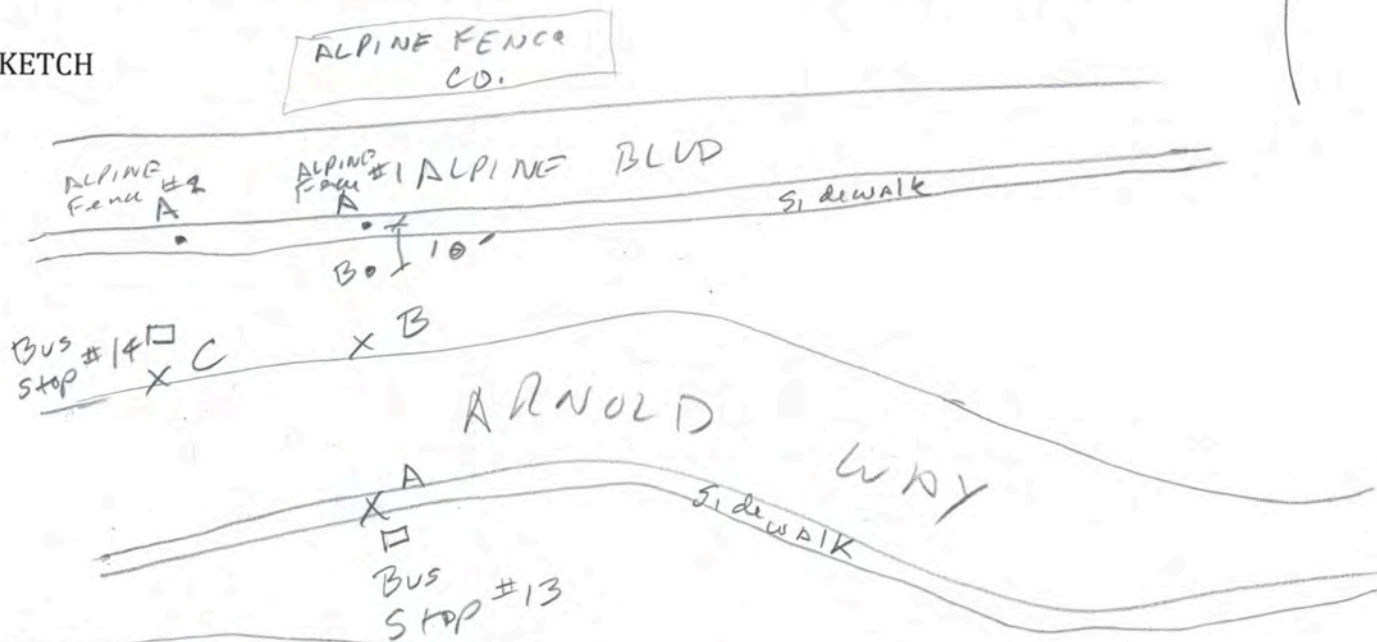 KETCH
ALPINE FENCE
CO.
ALPINE
Fence #2
A
ALPINE
Fence #1
A
ALPINE BLVD
Sidewalk
B
10'
Bus
Stop #14
C
B
ARNOLD WAY
A
Sidewalk
Bus
Stop #13